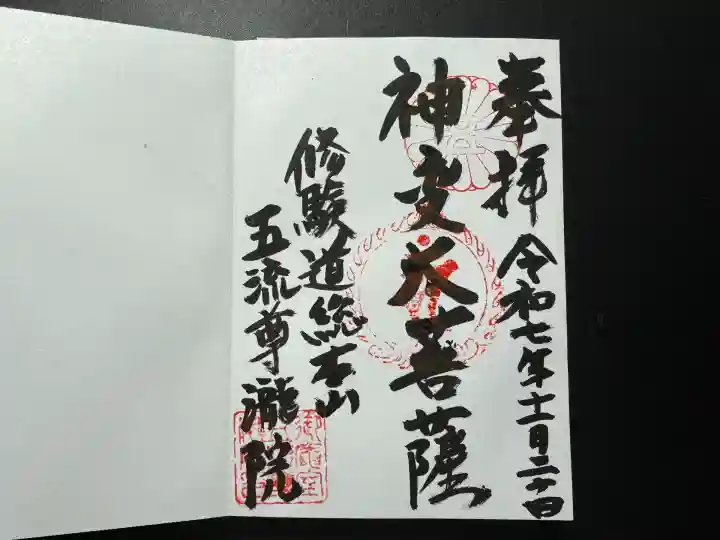 奉拝
令和七年十一月二十日
神変大菩薩
修験道総本山
五流尊瀧院